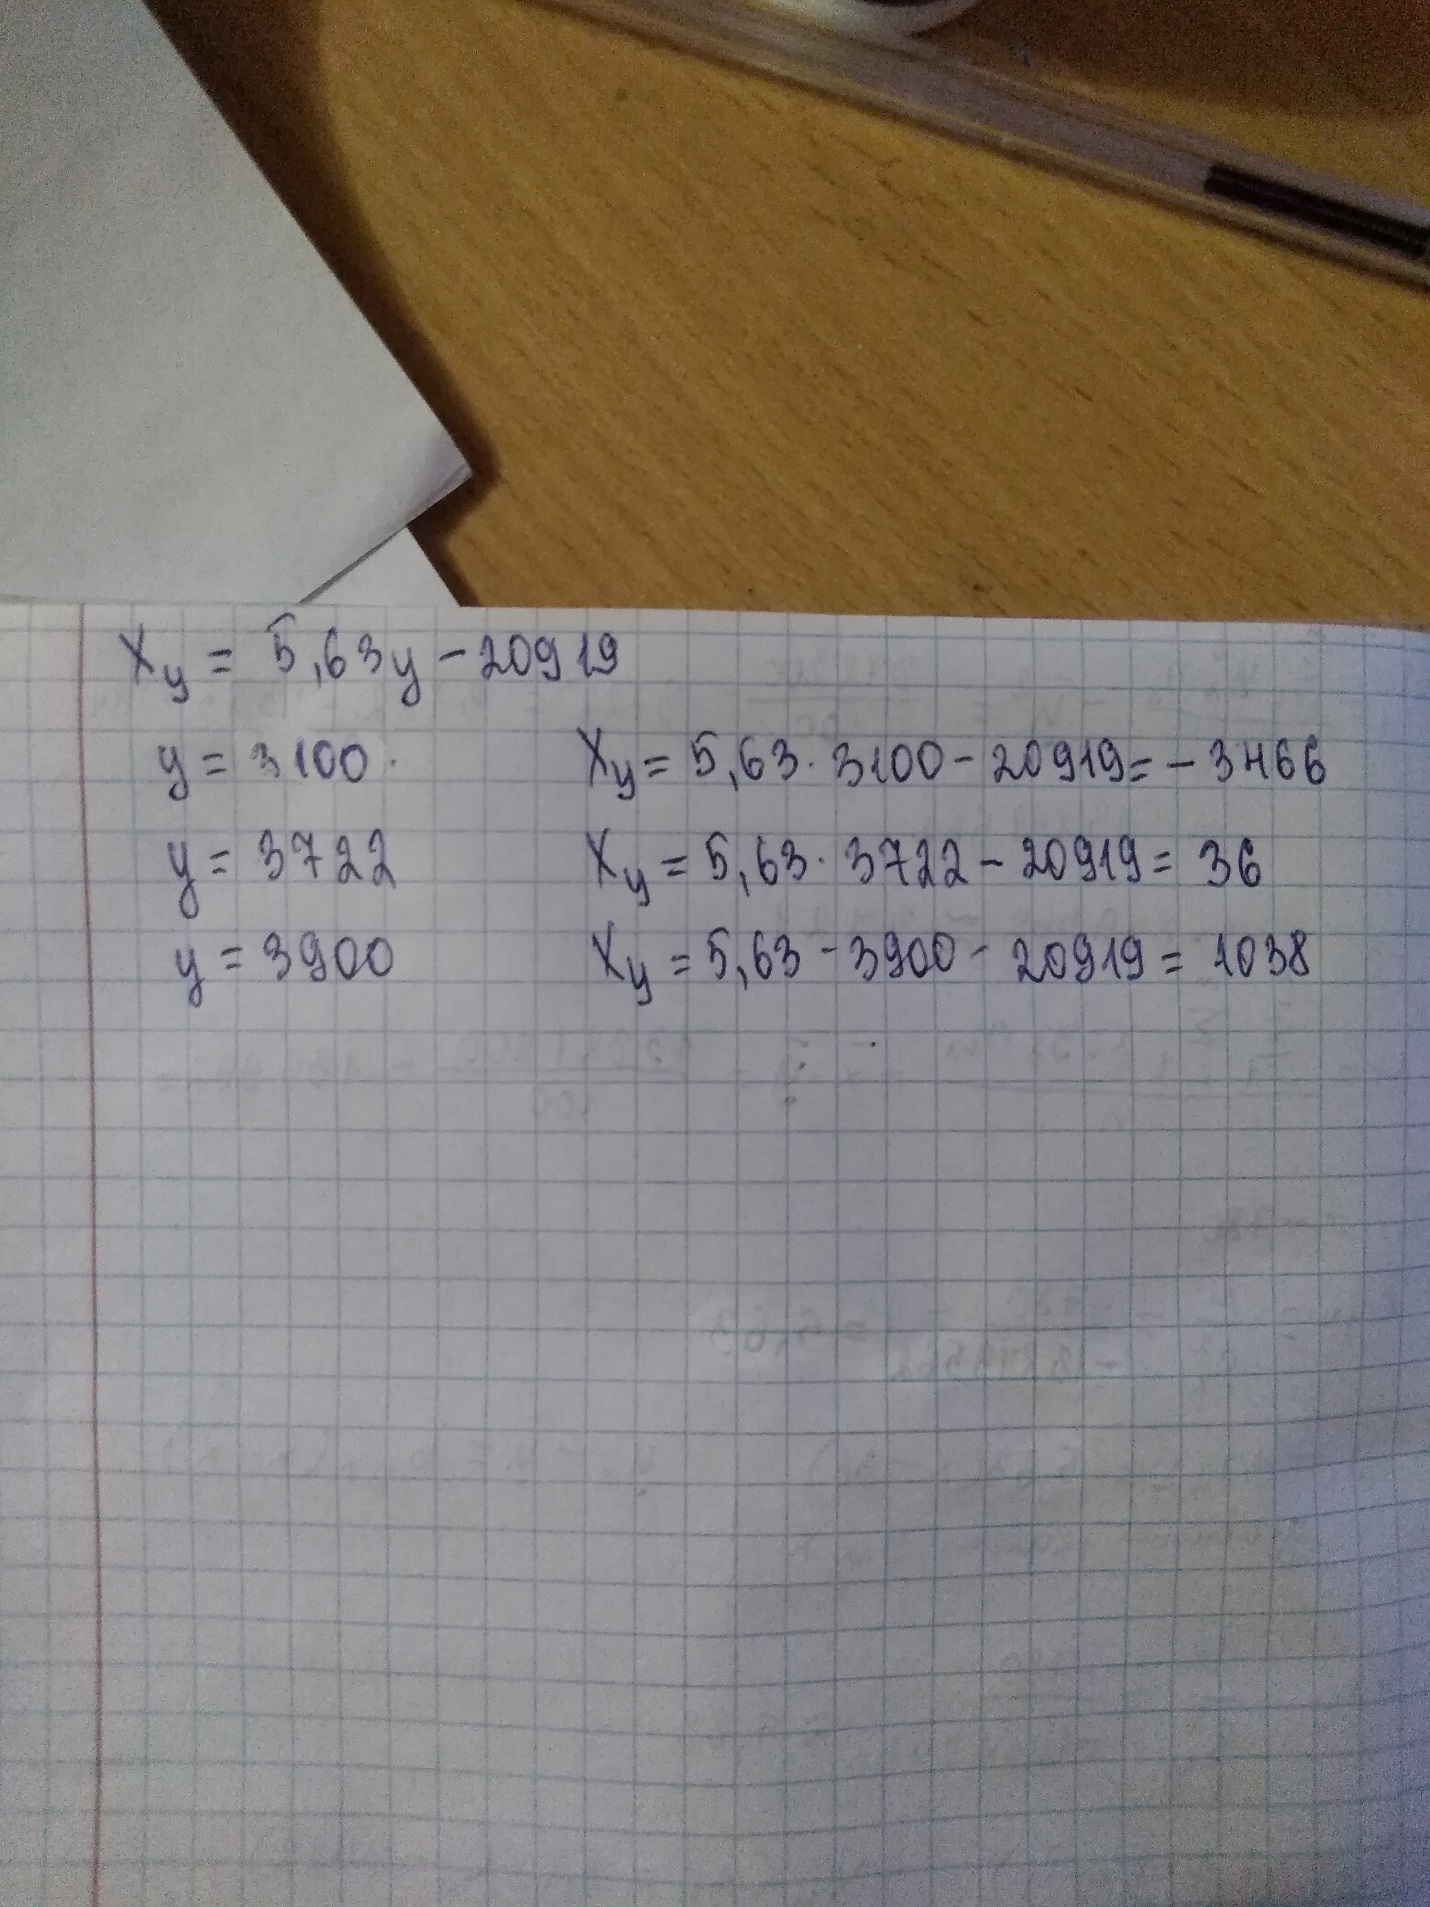 Xy = 5,63y - 20919
y = 3100 Xy = 5,63 · 3100 - 20919 = - 3466
y = 3722 Xy = 5,63 · 3722 - 20919 = 36
y = 3900 Xy = 5,63 - 3900 - 20919 = 1038